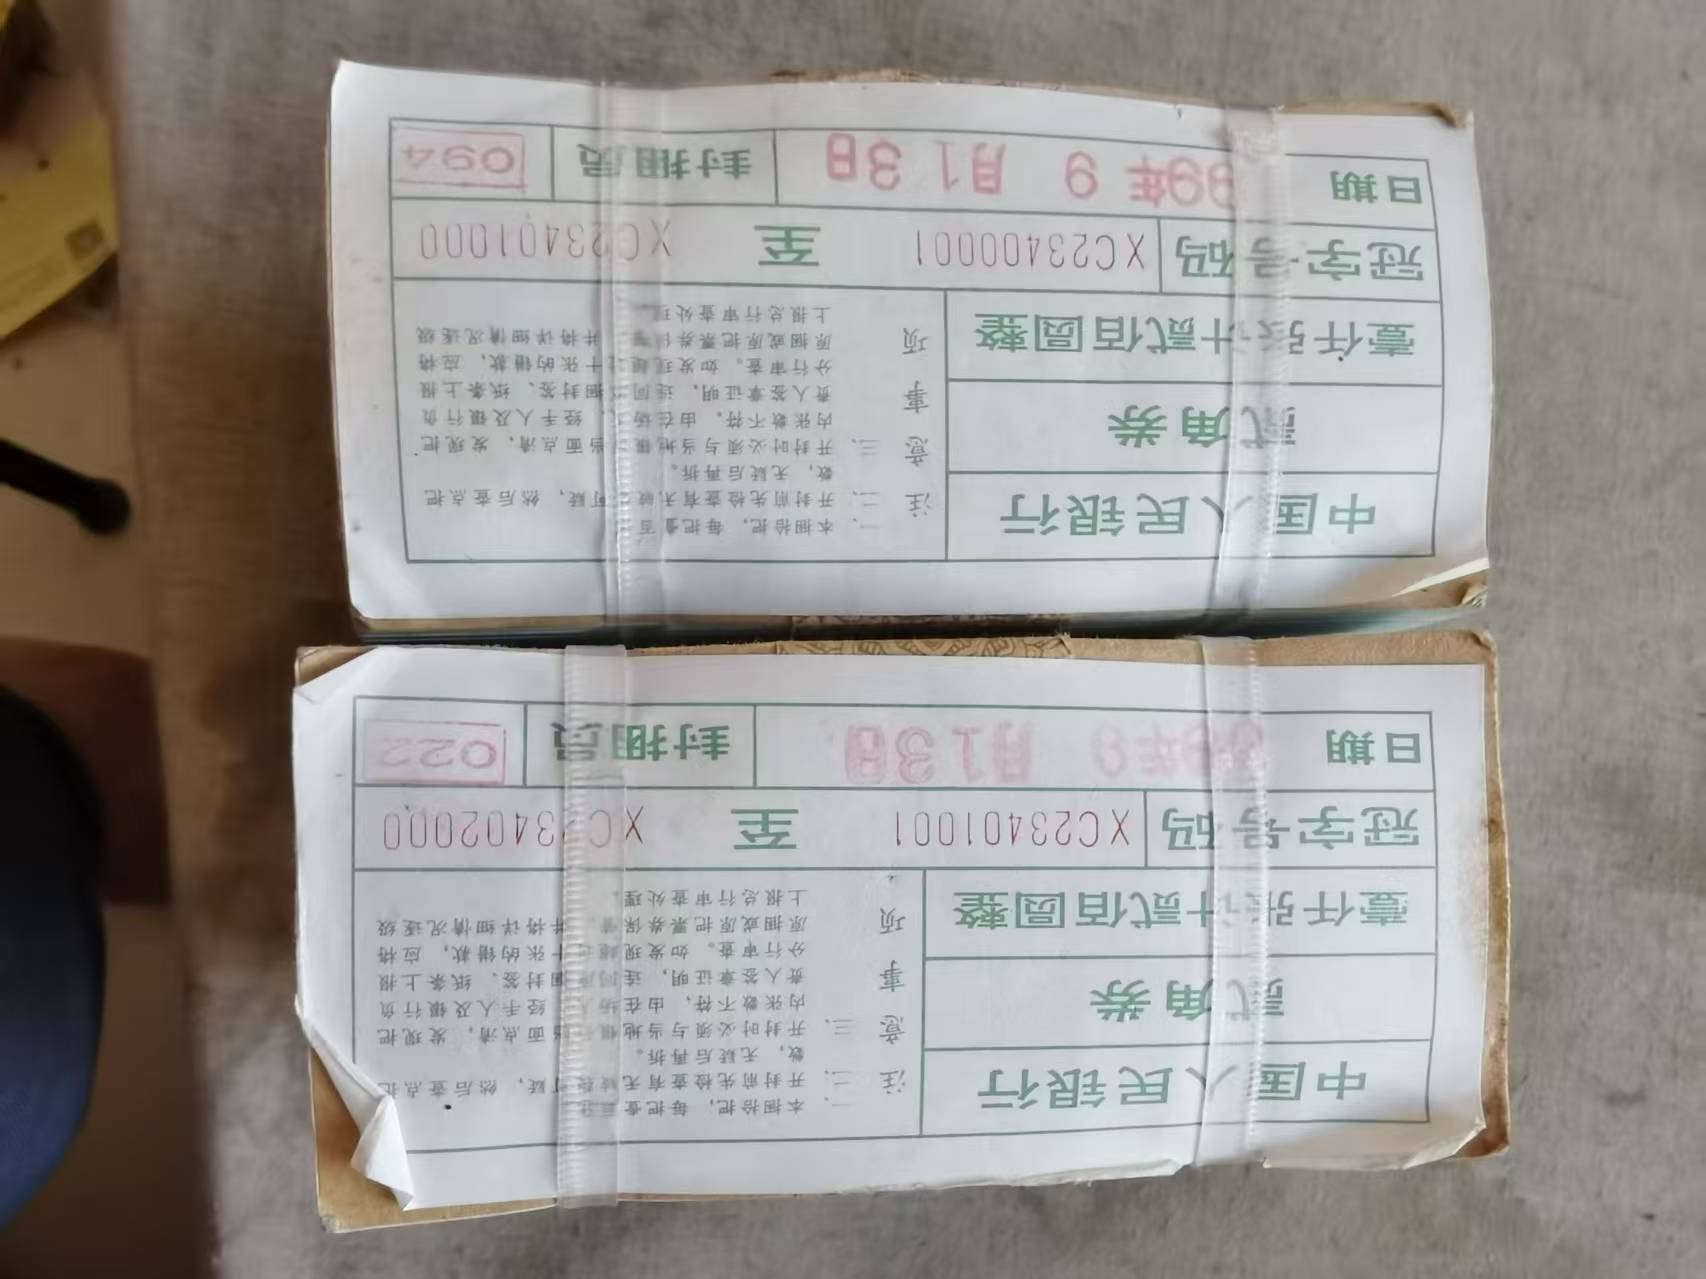 中国人民银行
贰角券
壹仟张计贰佰圆整
注意事项
一、本捆拾把，每把壹百
二、开封前先检查有无破 可疑，然后查点把
数，无疑后再拆。
三、开封时必须与当地银行当面点清，发现把
内张数不符，由在场人、经手人及银行负
责人签章证明，连同原捆封签、纸条上报
分行审查。如发现超过十张的错款，应将
原捆或原把票券保留，并将详细情况逐级
上报总行审查处理。
冠字号码 XC23401001 至 XC23402000
日期 99年9月13日 封捆员 022
中国人民银行
贰角券
壹仟张计贰佰圆整
注意事项
一、本捆拾把，每把壹百
二、开封前先检查有无破 可疑，然后查点把
数，无疑后再拆。
三、开封时必须与当地银行当面点清，发现把
内张数不符，由在场人、经手人及银行负
责人签章证明，连同原捆封签、纸条上报
分行审查。如发现超过十张的错款，应将
原捆或原把票券保留，并将详细情况逐级
上报总行审查处理。
冠字号码 XC23400001 至 XC23401000
日期 99年9月13日 封捆员 094